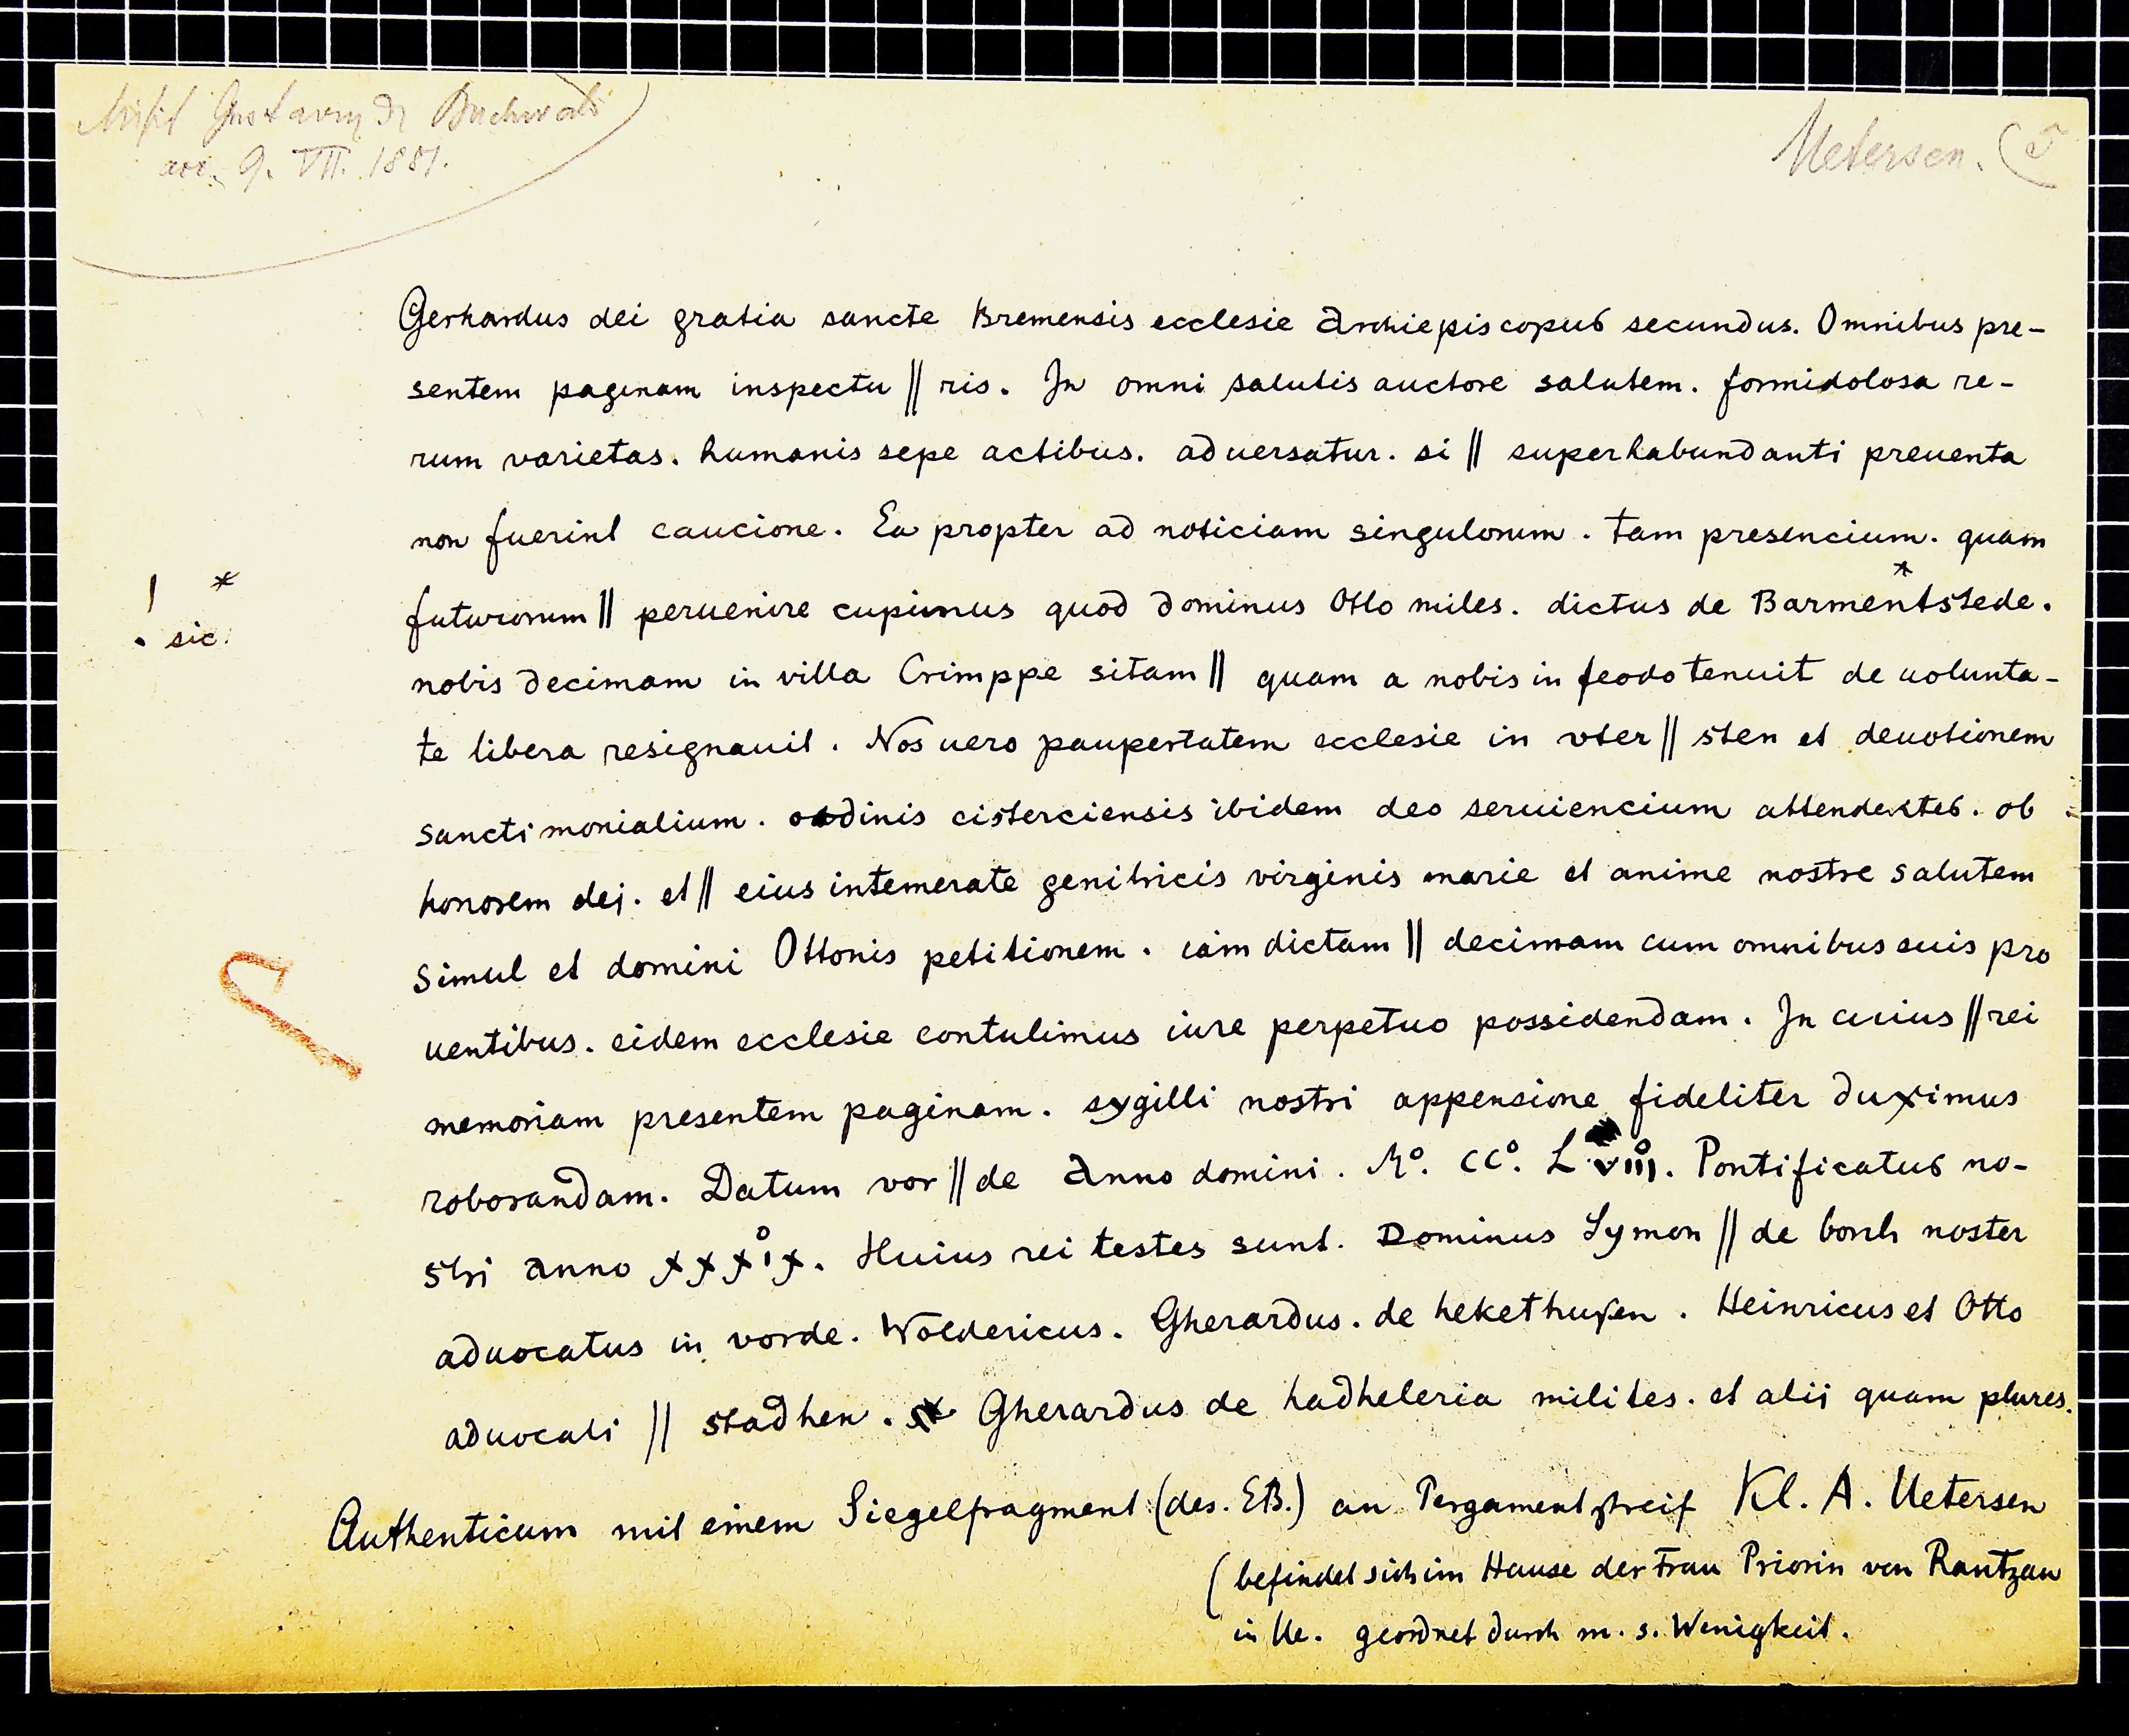 Misit Gustavus de Buchwald
acc. 9. VII. 1881.
Uetersen.
Gerhardus dei gratia sancte Bremensis ecclesie Archiepiscopus secundus. Omnibus pre-
sentem paginam inspectu || ris. In omni salutis auctore salutem. formidolosa re-
rum varietas. humanis sepe actibus. aduersatur. si || superhabundanti preuenta
non fuerint caucione. Ea propter ad noticiam singulorum. tam presencium. quam
futurorum || peruenire cupimus quod dominus Otto miles. dictus de Barmentstede. *
! *
sic.
nobis decimam in villa Crimppe sitam || quam a nobis in feodo tenuit de uolunta-
te libera resignauit. Nos uero paupertatem ecclesie in vter || sten et deuotionem
sanctimonialium. ordinis cisterciensis ibidem deo seruiencium attendentes. ob
honorem dei. et || eius intemerate genitricis virginis marie et anime nostre salutem
simul et domini Ottonis petitionem. iam dictam || decimam cum omnibus suis pro
uentibus. eidem ecclesie contulimus iure perpetuo possidendam. In cuius || rei
memoriam presentem paginam. sygilli nostri appensione fideliter duximus
roborandam. Datum vor || de Anno domini. M°. CC°. L. viii°. Pontificatus no-
stri anno xxx°ix. Huius rei testes sunt. Dominus Symon || de borch noster
aduocatus in vorde. Woldericus. Gherardus. de hekethusen. Heinricus et Otto
aduocati || stadhen. Gherardus de hadheleria milites. et alii quam plures.
Authenticum mit einem Siegelfragment (des. EB.) an Pergamentstreif Kl. A. Uetersen
(befindet sich im Hause der Frau Priorin von Rantzau
in Ue. geordnet durch m. s. Wenigkeit.